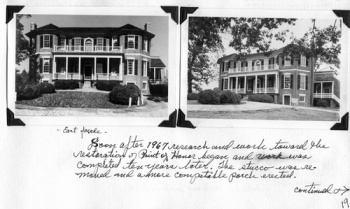 East facade.
Soon after 1967 research and work toward the
restoration of Point of Honor began and work was
completed ten years later. The stucco was re-
moved and a more compatible porch erected.
continued →
19